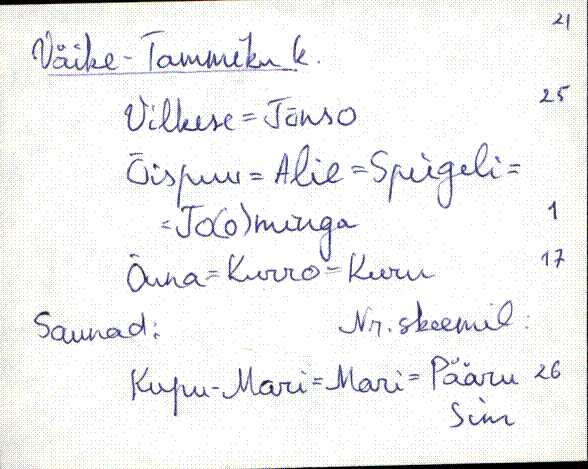 21
Väike-Tammiku k.
Vilkese = Jõnso 25
Õispuu = Alie = Speegeli =
= Jo(o)minga 1
Õuna = Kurro = Kuru 17
Saunad: Nr. skeemil:
Kupu-Mari = Mari = Pääru 26